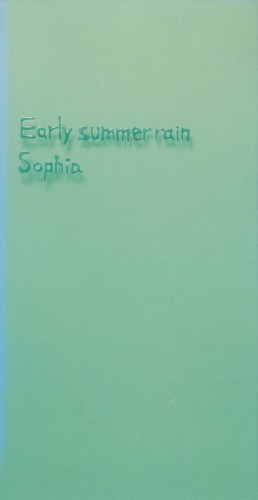 Early summer rain
Sophia